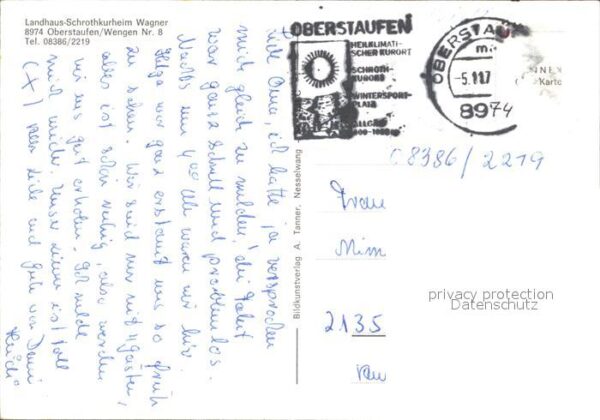 Landhaus-Schrothkurheim Wagner
8974 Oberstaufen/Wengen Nr. 8
Tel. 08386/2219
OBERSTAUFEN
HEILKLIMATI-
SCHER KURORT
SCHROTH-
KURORT
WINTERSPORT-
PLATZ
ALLGÄU
OBERSTAUFEN
8974
Karte
08386/2219
Liebe Oma, ich hatte ja versprochen
mich gleich zu melden, die Fahrt
war ganz schnell und problemlos.
Nachts um 4 00 Uhr waren wir hier.
Helga war ganz erstaunt uns so früh
zu sehen. Wir sind nur mit 4 Gästen,
alles ist schön ruhig, also werden
wir uns gut erholen. Ich melde
mich wieder. Unser Zimmer ist toll
(x)
Heidi
Bildkunstverlag A. Tanner, Nesselwang
Frau
2135
privacy protection
Datenschutz